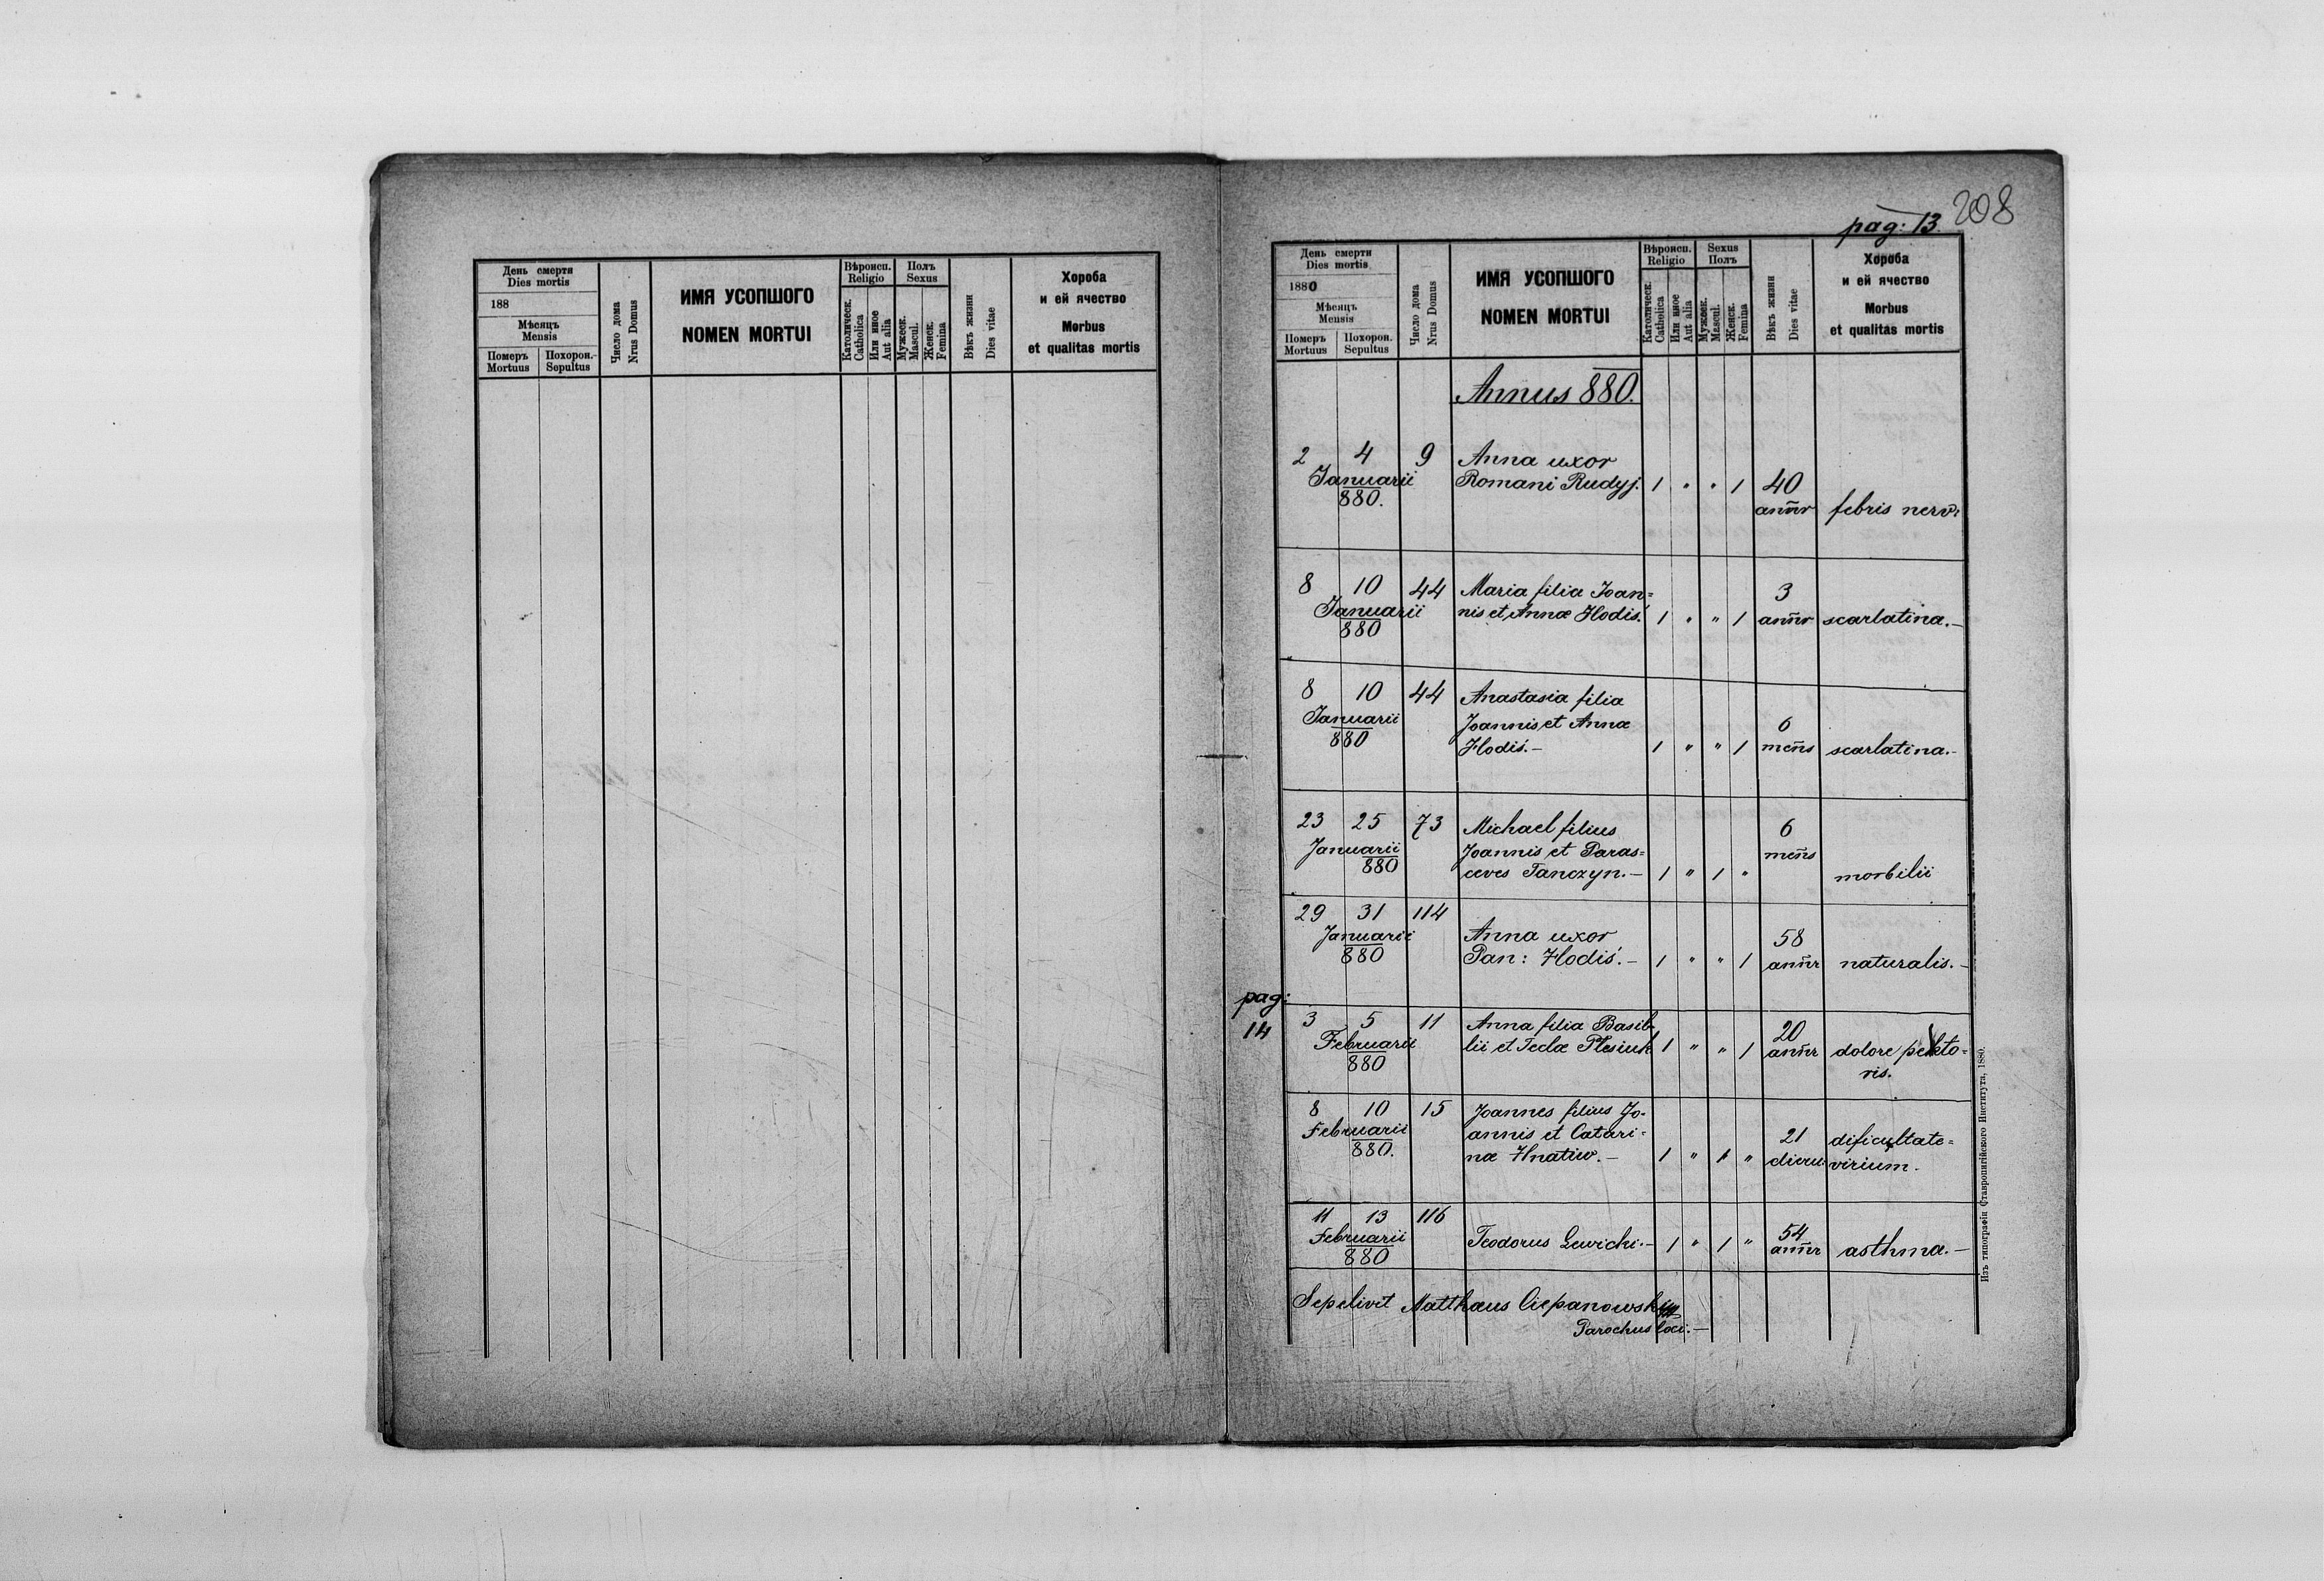 День смерти
Dies mortis
188
Мѣсяцъ
Mensis
Померъ
Mortuus
Похорон.
Sepultus
Число дома
Nrus Domus
ИМЯ УСОПШОГО
NOMEN MORTUI
Вѣроисп.
Religio
Католическ.
Catholica
Или иное
Aut alia
Полъ
Sexus
Мужеск.
Mascul.
Женск.
Femina
Вѣкъ жизни
Dies vitae
Хороба
и ей ячество
Morbus
et qualitas mortis
208
pag: 13.
День смерти
Dies mortis
1880
Мѣсяцъ
Mensis
Померъ
Mortuus
Похорон.
Sepultus
Число дома
Nrus Domus
ИМЯ УСОПШОГО
NOMEN MORTUI
Вѣроисп.
Religio
Католическ.
Catholica
Или иное
Aut alia
Sexus
Полъ
Мужеск.
Mascul.
Женск.
Femina
Вѣкъ жизни
Dies vitae
Хороба
и ей ячество
Morbus
et qualitas mortis
Annus 880.
2 4 9 Anna uxor
Januarii Romani Rudyj. 1 " " 1 40
880. annr febris nerv:
8 10 44 Maria filia Joan= 3
Januarii nis et Annæ Hodiś. 1 " " 1 annr scarlatina.—
880
8 10 44 Anastasia filia
Januarii Joannis et Annæ 6
880 Hodiś.— 1 " " 1 mens scarlatina.—
23 25 73 Michael filius 6
Januarii Joannis et Paras= mens
880 ceves Tanczyn.— 1 " 1 " morbilii
29 31 114
Januarii Anna uxor 58
880 Pan: Hodiś.— 1 " " 1 annr naturalis.—
pag:
14
3 5 11 Anna filia Basi- 20
Februarii lii et Teclæ Plesiuk 1 " " 1 annr dolore pekto=
880 ris.
8 10 15 Joannes filius Jo-
Februarii annis et Catari- 21 dificultate=
880. næ Hnatiw.— 1 " 1 " dieru virium.
11 13 116
Februarii Teodorus Lewicki.— 1 " 1 " 54 annr asthma.—
880
Sepelivit Matthæus Ciepanowskyj
Parochus loci.—
Изъ типографіи Ставропигійского Института, 1880.